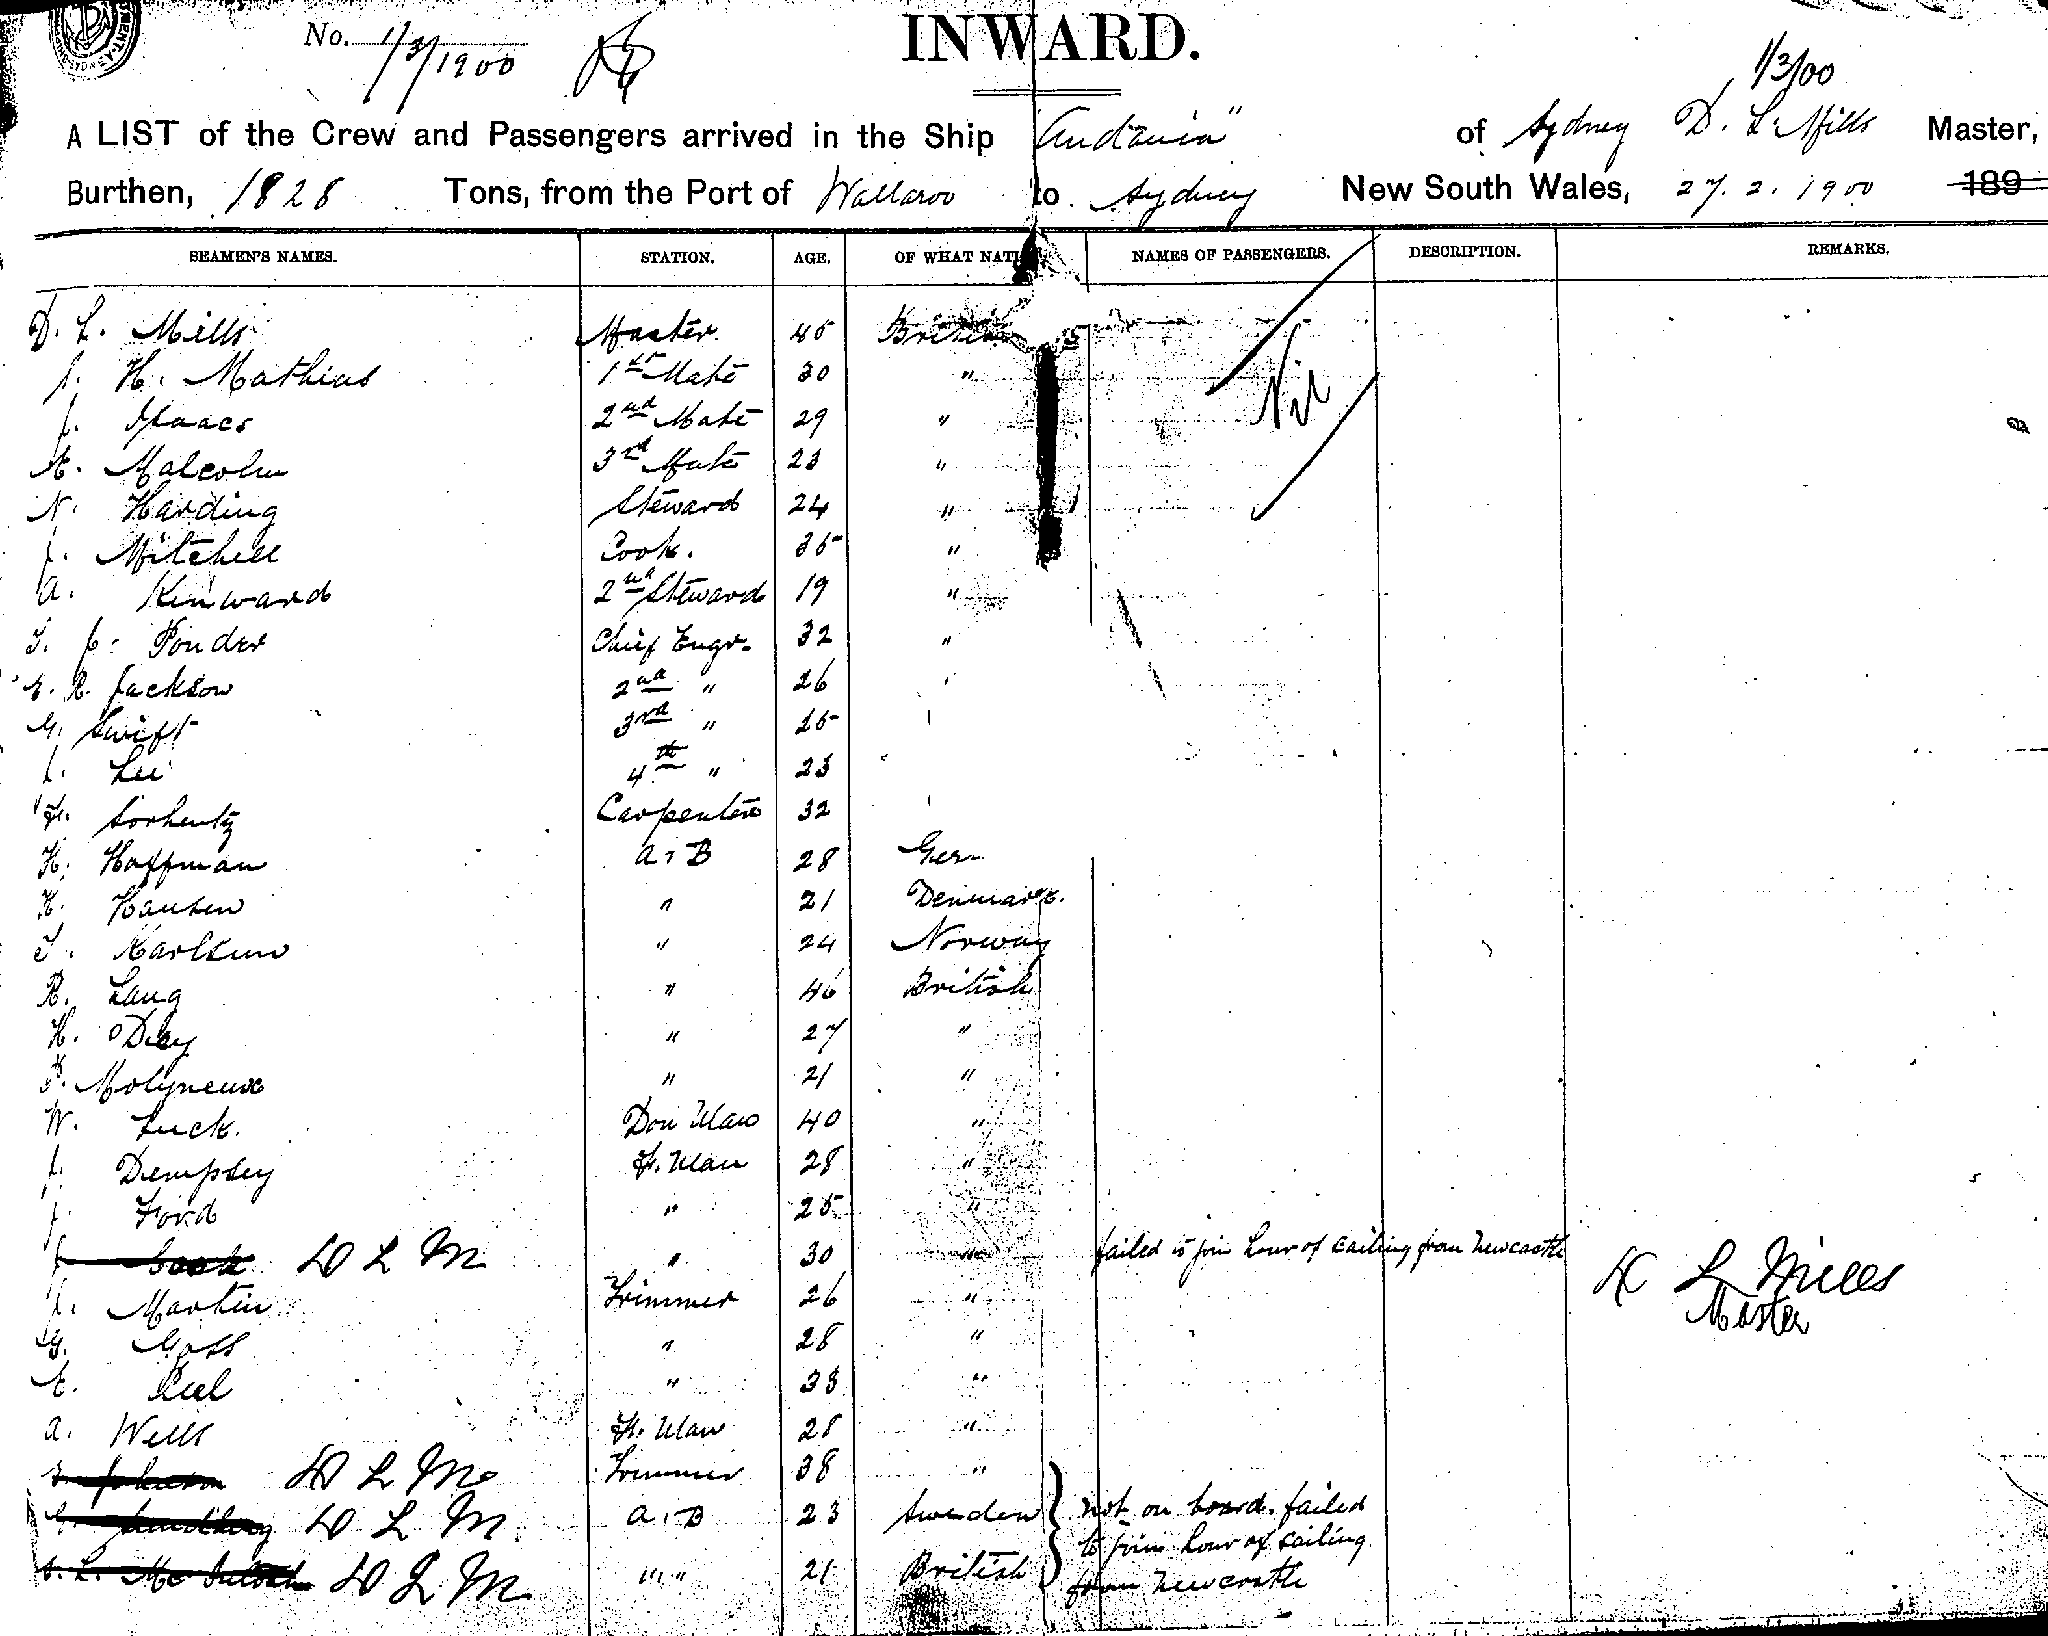 No. 1/3/1900
INWARD.
1/3/00
A LIST of the Crew and Passengers arrived in the Ship "Andania" of Sydney D. L. Mills Master,
Burthen, 1828 Tons, from the Port of Wallaroo to Sydney New South Wales, 27. 2. 1900 189
SEAMEN'S NAMES. STATION. AGE. OF WHAT NATI NAMES OF PASSENGERS. DESCRIPTION. REMARKS.
D. L. Mills Master. 45 British
J. H. Mathias 1st Mate 30 " Nil
J. Isaacs 2nd Mate 29 "
A. Malcolm 3rd Mate 23 "
N. Harding Steward 24 "
J. Mitchell Cook. 35 "
A. Kenward 2nd Steward 19 "
T. J. Ponder Chief Engr. 32 "
E. R. Jackson 2nd " 26
G. Swift 3rd " 25
J. Lee 4th " 23
F. Carpenter 32
H. Hoffman A.B 28 Ger
H. Hansen " 21 Denmark.
T. Karlsun " 24 Norway
R. Lang " 46 British
H. O'Dey " 27 "
P. Molyneux " 21 "
W. Luck. Don Man 40 "
J. Dempsey F. Man 28 "
J. Ford " 25 "
J. Cook D L M " 30 " failed to join hour of sailing from Newcastle
D L Mills
Master
J. Martin Trimmer 26 "
G. Goss " 28 "
E. Peel " 33 "
A. Wells F. Man 28 "
Johnson D L M Trimmer 38 "
D L M A.B 23 Sweden not on board. failed
to join hour of sailing
D L M " " 21 British from Newcastle